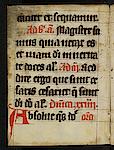 eiaiet et sequamur.
Ad b'. a'. Magister sci
mus quia uerax es
et uiam di in uerita
te doces al'. Ad m'. a' red
dite ergo que sunt ce
saris cesari et que sunt
di do al'. Dnica. xxiiii.
Absolue qs dne